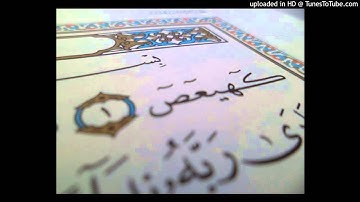 uploaded in HD @ TunesToTube.com
كٓهيعٓصٓ ١
رَبَّهُۥ